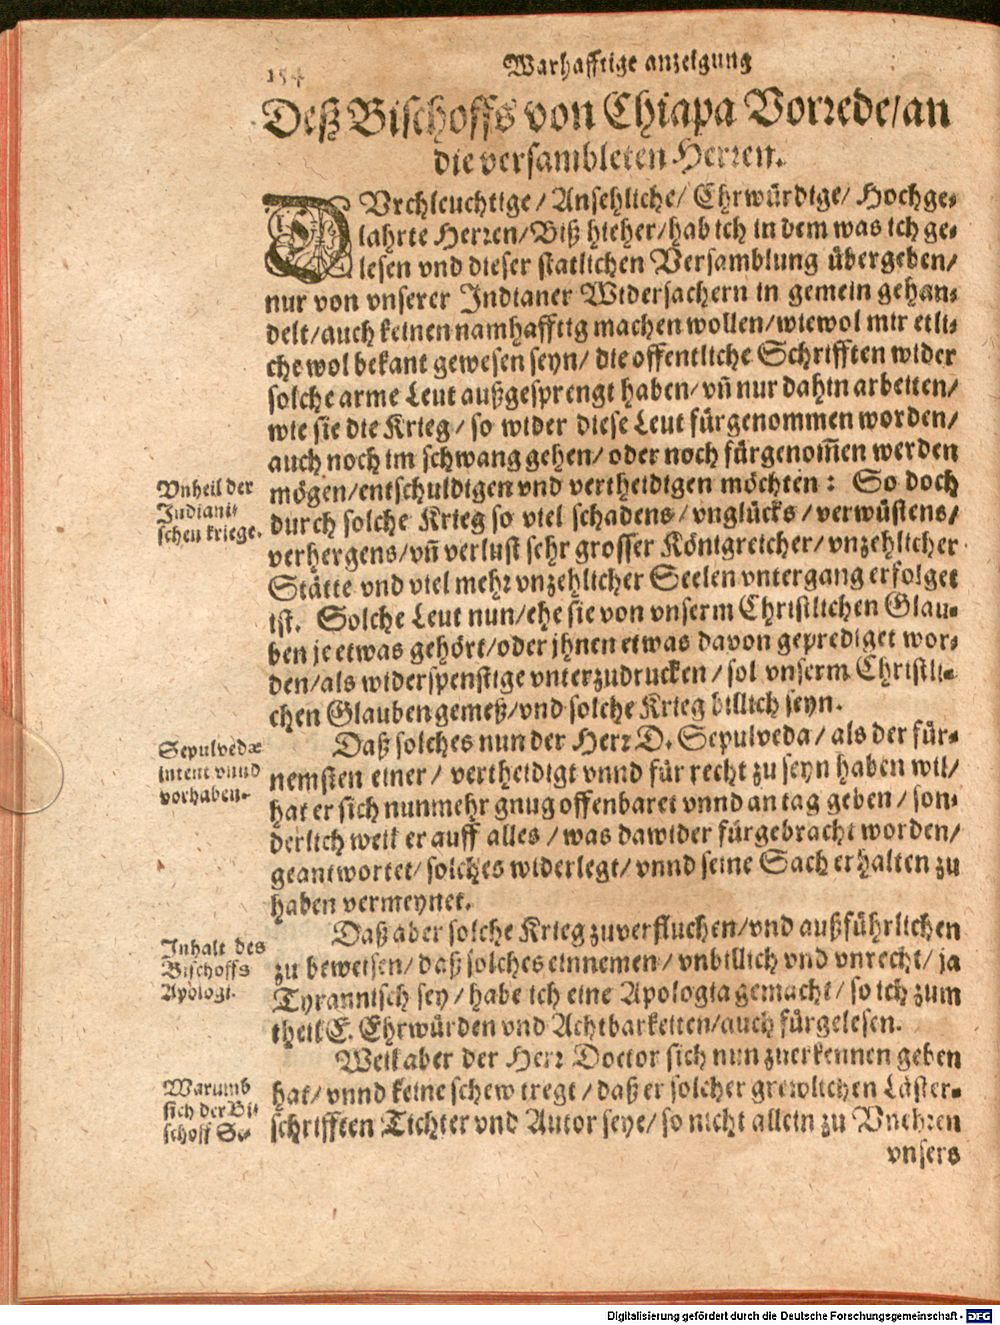 154 Warhafftige anzeigung
Deß Bischoffs von Chiapa Vorrede/an
die versambleten Herren.
DVrchleuchtige / Ansehliche/ Ehrwürdige/ Hochge-
lahrte Herren/Biß hieher/hab ich in dem was ich ge-
lesen vnd dieser statlichen Versamblung übergeben/
nur von vnserer Indianer Widersachern in gemein gehan-
delt/auch keinen namhafftig machen wollen/wiewol mir etli-
che wol bekant gewesen seyn/ die offentliche Schrifften wider
solche arme Leut außgesprengt haben/ vñ nur dahin arbeiten/
wie sie die Krieg/ so wider diese Leut fürgenommen worden/
auch noch im schwang gehen/ oder noch fürgenom̃en werden
Vnheil der
Indiani-
schen kriege.
mögen/entschuldigen vnd vertheidigen möchten: So doch
durch solche Krieg so viel schadens/ vnglücks/ verwüstens/
verhergens/vñ verlust sehr grosser Königreicher/ vnzehlicher
Stätte vnd viel mehr vnzehlicher Seelen vntergang erfolget
ist. Solche Leut nun/ehe sie von vnserm Christlichen Glau-
ben je etwas gehört/oder jhnen etwas davon geprediget wor-
den/als widerspenstige vnterzudrucken/ sol vnserm Christli-
chen Glauben gemeß/vnd solche Krieg billich seyn.
Sepulvedæ
intent vnnd
vorhaben.
Daß solches nun der Herr D. Sepulveda/ als der für-
nemsten einer/ vertheidigt vnnd für recht zu seyn haben wil/
hat er sich nunmehr gnug offenbaret vnnd an tag geben/ son-
derlich weil er auff alles/ was dawider fürgebracht worden/
geantwortet/ solches widerlegt/ vnnd seine Sach erhalten zu
haben vermeynet.
Inhalt des
Bischoffs
Apologi.
Daß aber solche Krieg zuverfluchen/vnd außführlichen
zu beweisen/ daß solches einnemen/ vnbillich vnd vnrecht/ ja
Tyrannisch sey/ habe ich eine Apologia gemacht/ so ich zum
theil E. Ehrwürden vnd Achtbarkeiten/auch fürgelesen.
Warumb
sich der Bi-
schoff Se-
Weil aber der Herr Doctor sich nun zuerkennen geben
hat/ vnnd keine schew tregt/ daß er solcher grewlichen Läster-
schrifften Tichter vnd Autor seye/ so nicht allein zu Vnehren
vnsers
Digitalisierung gefördert durch die Deutsche Forschungsgemeinschaft - DFG